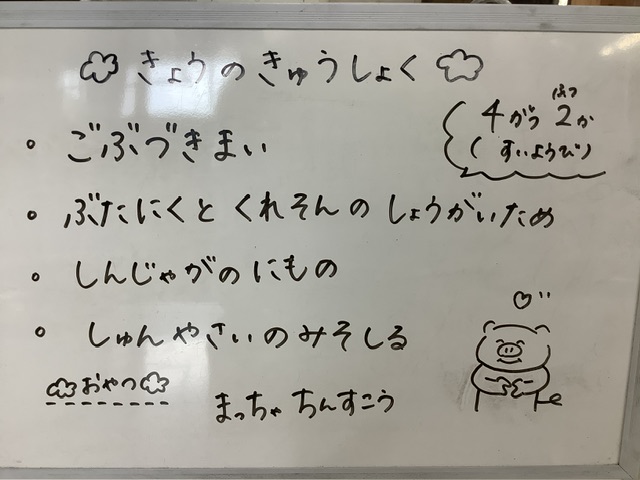 きょうのきゅうしょく
4がつ2か
ふつ
(すいようび)
・ごぶづきまい
・ぶたにくとくれそんのしょうがいため
・しんじゃがのにもの
・しゅんやさいのみそしる
おやつ
まっちゃちんすこう